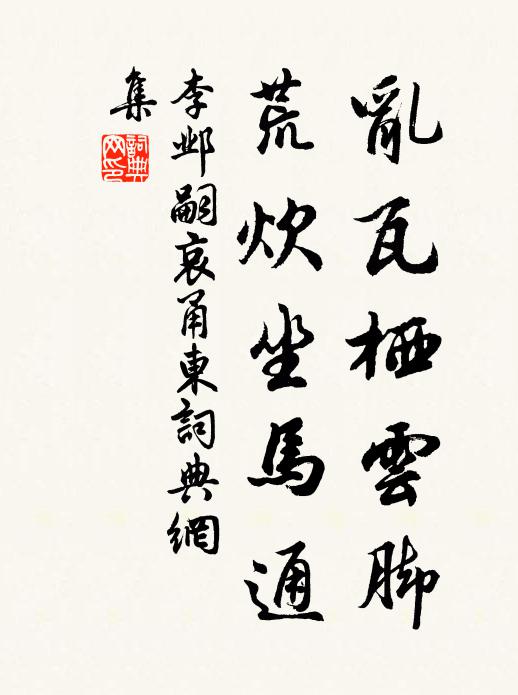 亂瓦栖雲脚
荒炊坐馬通
李鄴嗣哀甬東詞典網
集
詞典網印